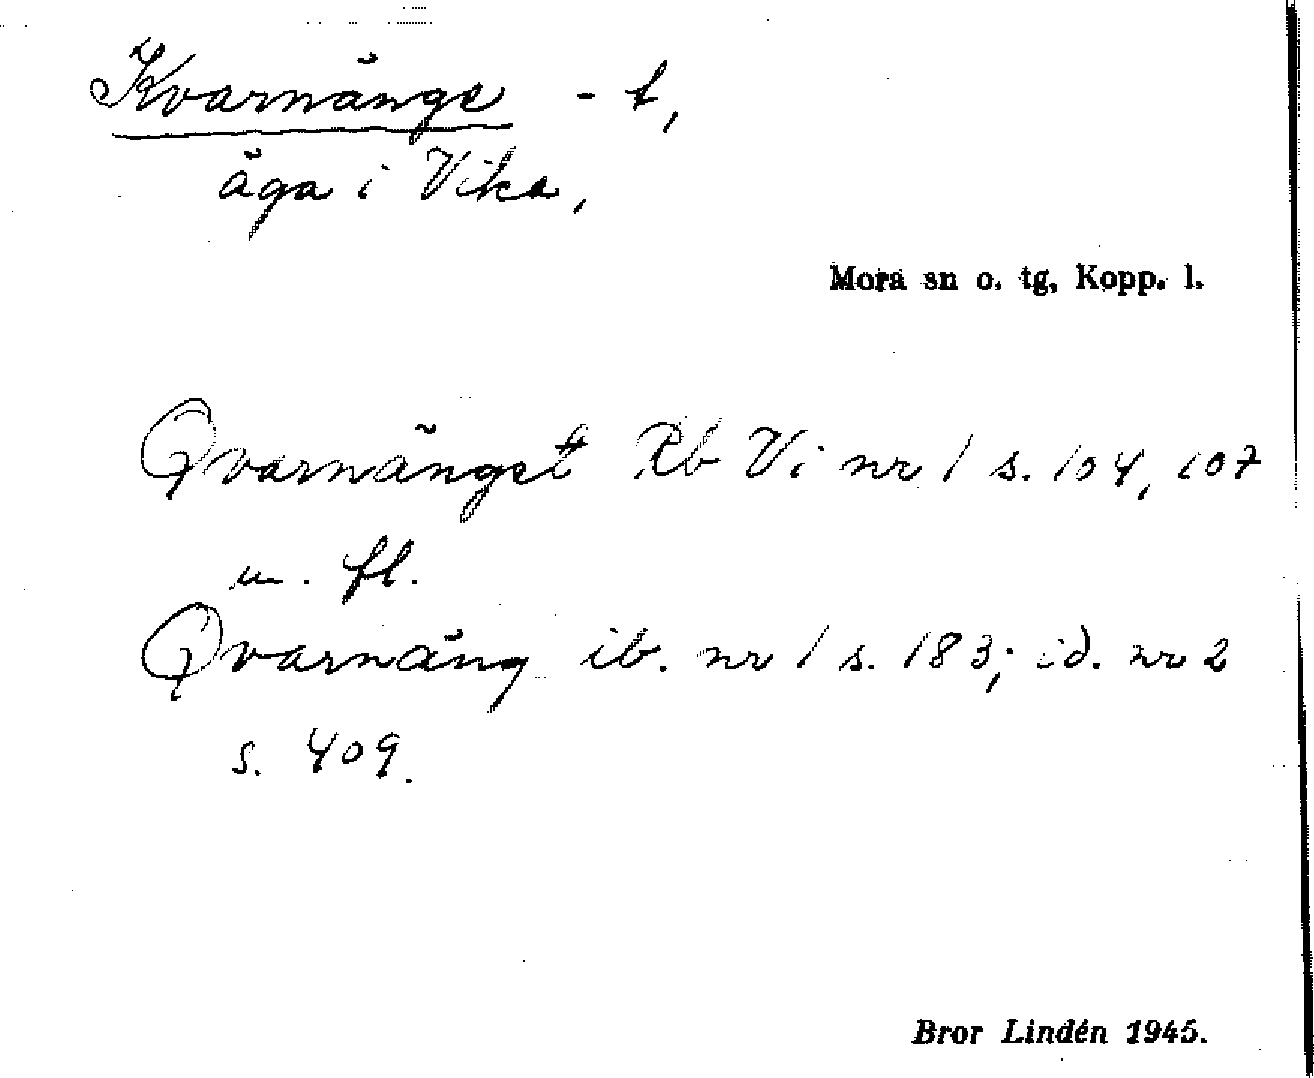 Kvarnänge -t,
äga i Vika,
Mora sn o. tg, Kopp. l.
Qvarnänget Rb Vi nr 1 s. 104, 107
m. fl.
Qvarnäng ib. nr 1 s. 183; id. nr 2
s. 409.
Bror Lindén 1945.